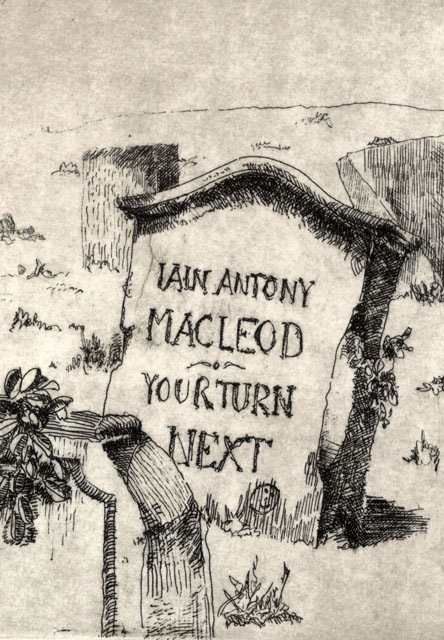 IAIN ANTONY
MACLEOD
YOUR TURN
NEXT